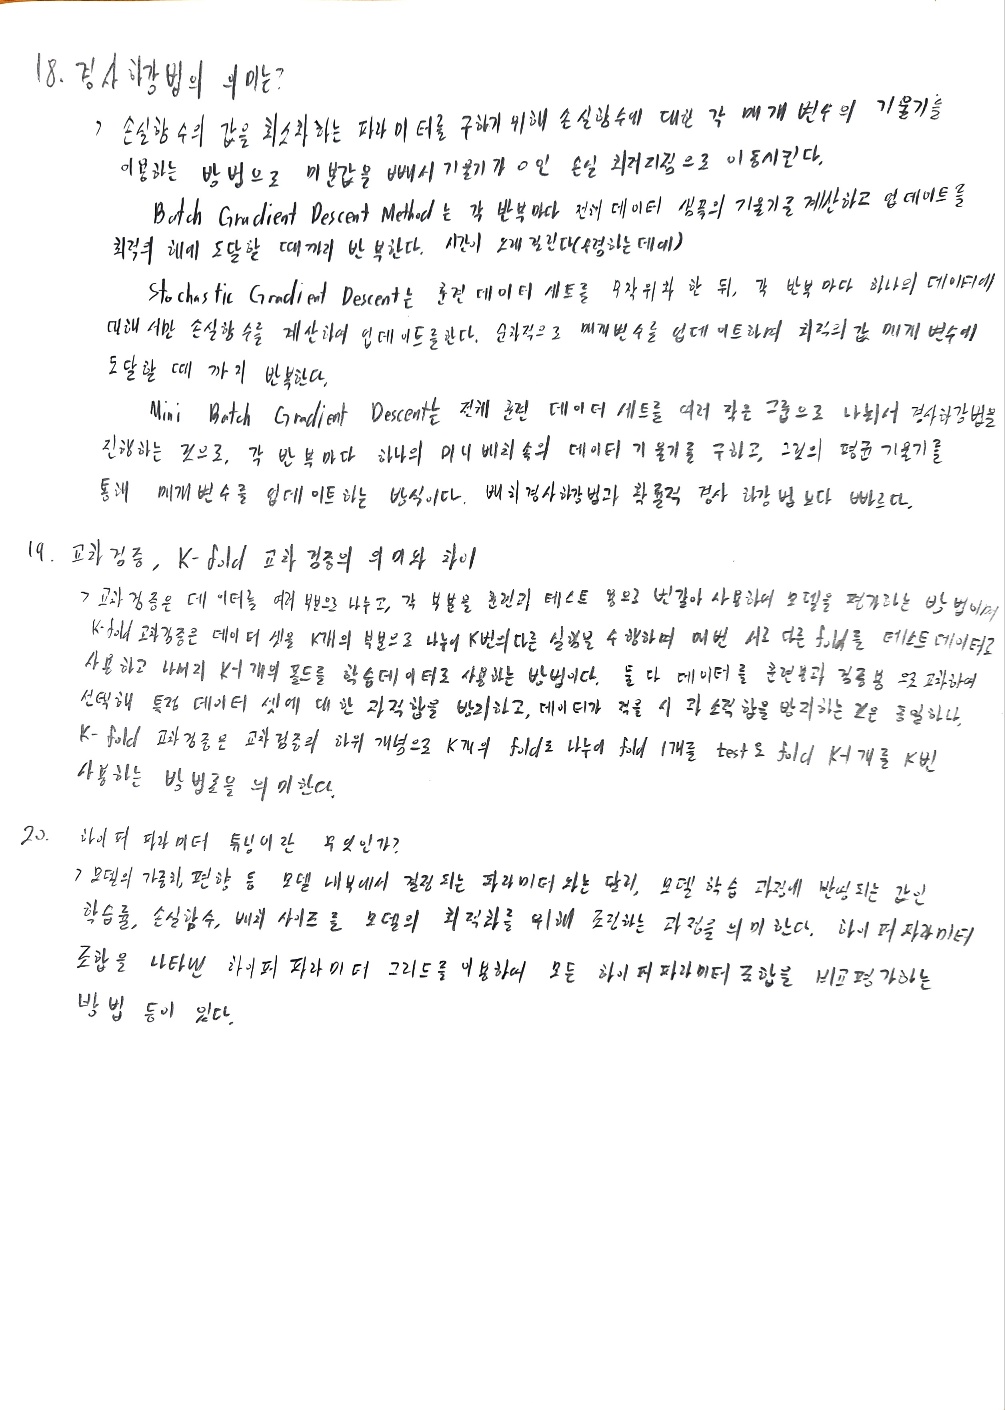 18. 경사 하강법의 의미는?
> 손실함수의 값을 최소화하는 파라미터를 구하기 위해 손실함수에 대한 각 매개 변수의 기울기를
이용하는 방법으로 미분값을 빼서 기울기가 0인 손실 최저지점으로 이동시킨다.
Batch Gradient Descent Method는 각 반복마다 전체 데이터 샘플의 기울기를 계산하고 업데이트를
최적의 해에 도달할 때까지 반복한다. 시간이 오래 걸린다(수렴하는데에)
Stochastic Gradient Descent는 훈련 데이터 세트를 무작위화 한 뒤, 각 반복 마다 하나의 데이터에
대해서만 손실함수를 계산하여 업데이트를한다. 순차적으로 매개변수를 업데이트하며 최적의 값 매개 변수에
도달할 때 까지 반복한다.
Mini Batch Gradient Descent는 전체 훈련 데이터 세트를 여러 작은 그룹으로 나눠서 경사하강법을
진행하는 것으로, 각 반복마다 하나의 미니배치속의 데이터 기울기를 구하고, 그것의 평균 기울기를
통해 매개변수를 업데이트하는 방식이다. 배치경사하강법과 확률적 경사 하강법 보다 빠르다.
19. 교차검증, K-fold 교차 검증의 의미와 차이
> 교차검증은 데이터를 여러 부분으로 나누고, 각 부분을 훈련과 테스트 용으로 번갈아 사용하여 모델을 평가하는 방법이며
K-fold 교차검증은 데이터 셋을 K개의 부분으로 나누어 K번의다른 실험을 수행하며 매번 서로 다른 fold를 테스트데이터로
사용하고 나머지 K-1개의 폴드를 학습데이터로 사용하는 방법이다. 둘 다 데이터를 훈련용과 검증용 으로 교차하여
선택해 특정 데이터 셋에 대한 과적합을 방지하고, 데이터가 적을 시 과소적합을 방지하는 것은 동일하나,
K-fold 교차검증은 교차검증의 하위 개념으로 K개의 fold로 나누어 fold 1개를 test로 fold K-1개를 K번
사용하는 방법론을 의미한다.
20. 하이퍼 파라미터 튜닝이란 무엇인가?
> 모델의 가중치, 편향 등 모델 내부에서 결정되는 파라미터와는 달리, 모델 학습 과정에 반영되는 값인
학습률, 손실함수, 배치 사이즈를 모델의 최적화를 위해 조절하는 과정을 의미한다. 하이퍼 파라미터
조합을 나타낸 하이퍼 파라미터 그리드를 이용하여 모든 하이퍼 파라미터 조합을 비교평가하는
방법 등이 있다.